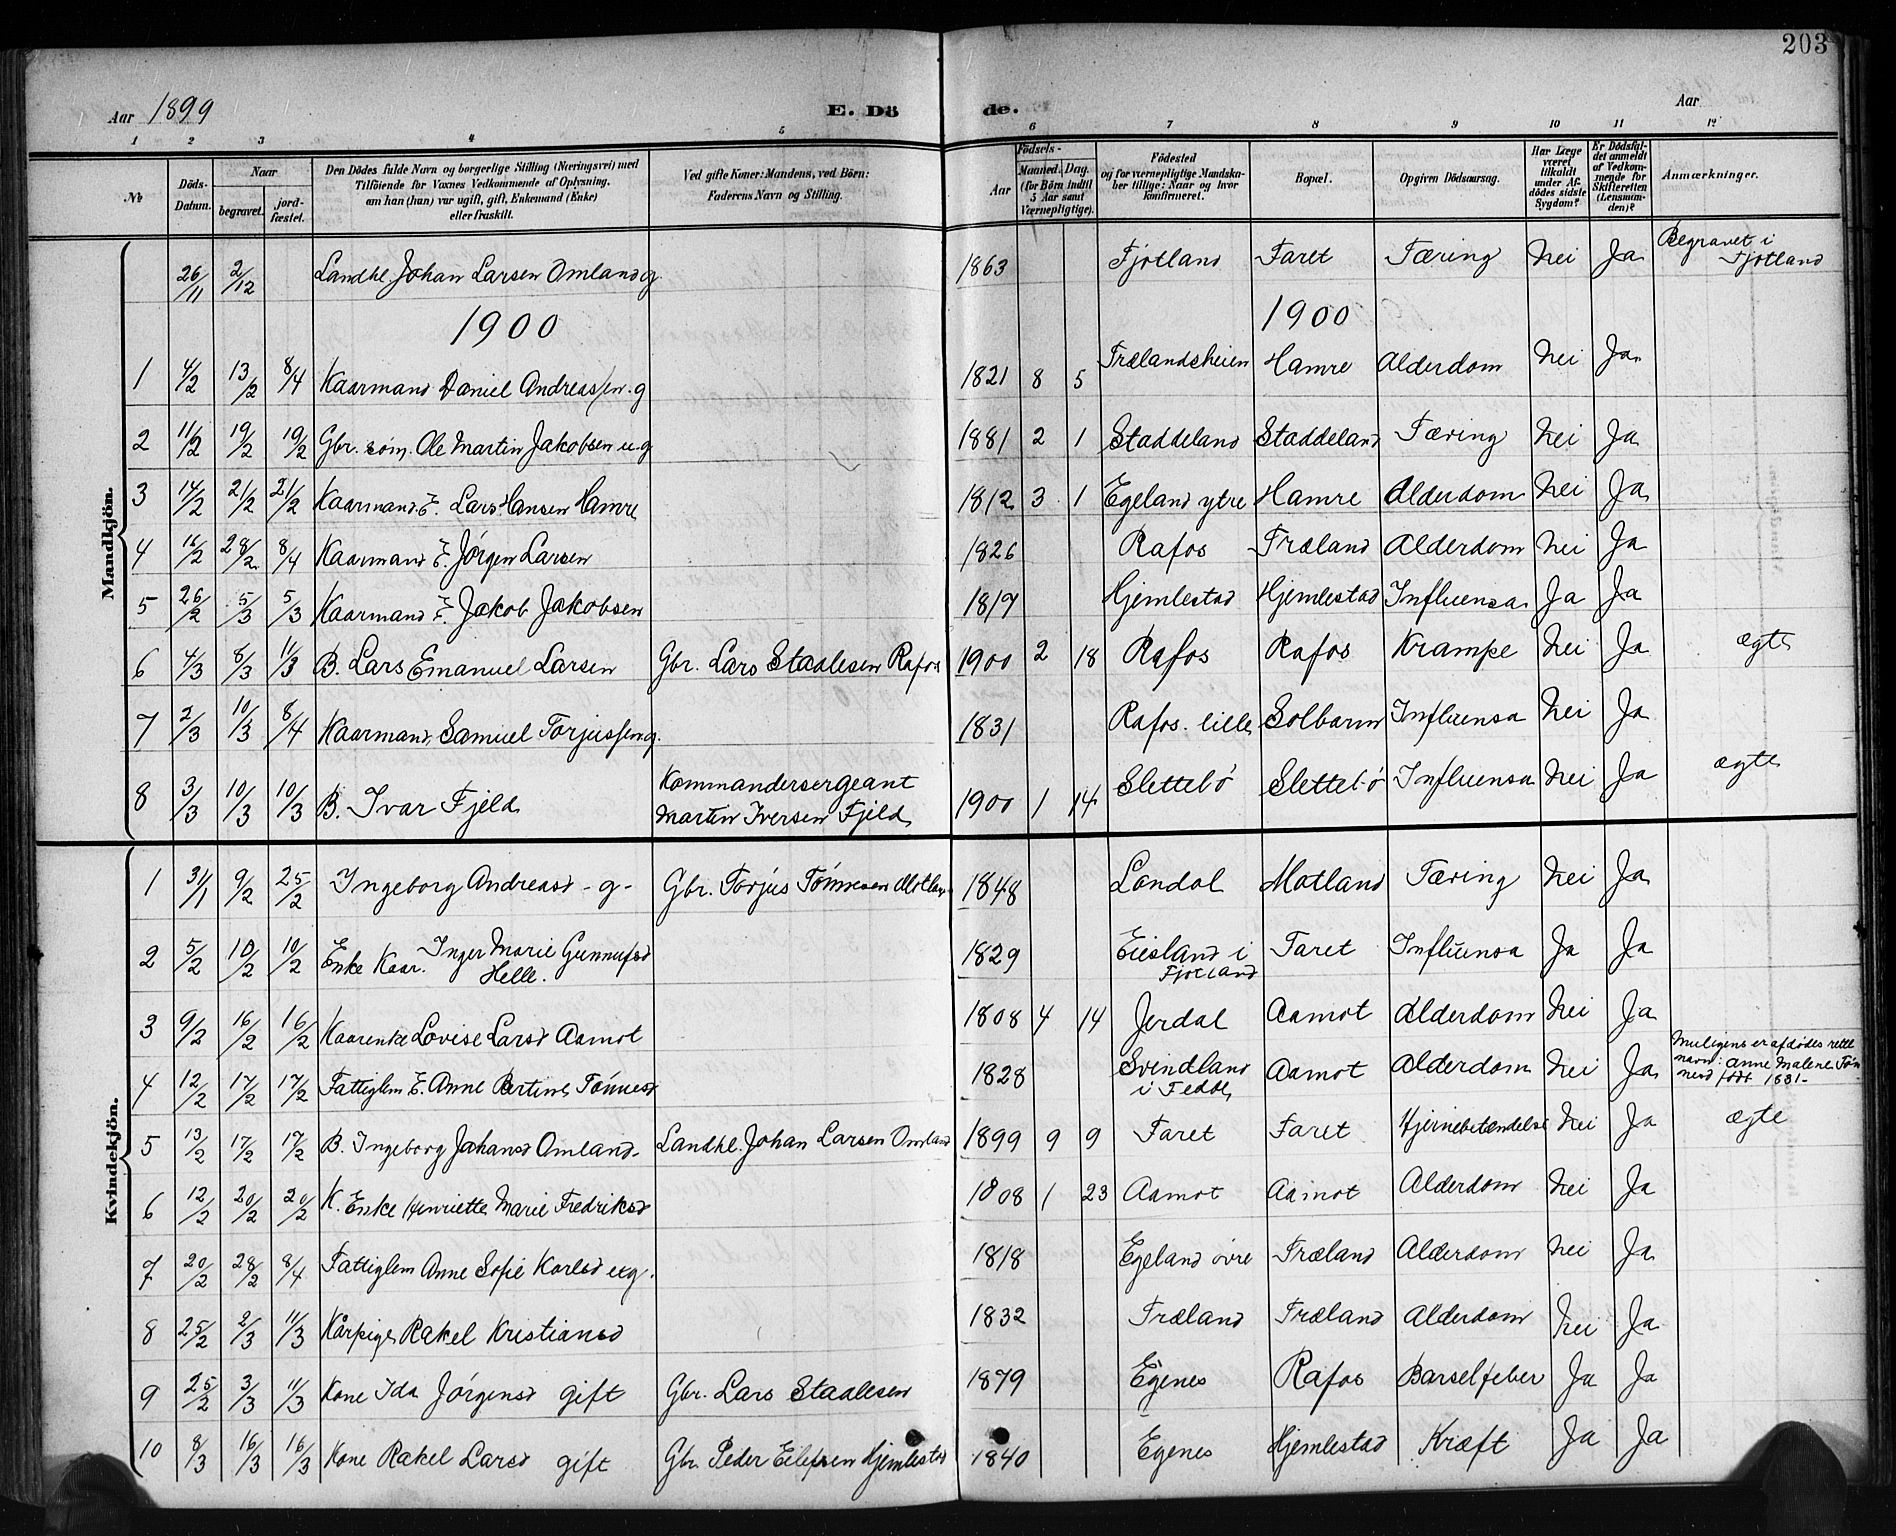 203
Aar 1899 E. Dö de. Aar
1 2 3 4 5 6 7 8 9 10 11 12
№ Döds-Datum. Naar begravet. jord-fæstet. Den Dödes fulde Navn og borgerlige Stilling (Næringsvei) med Tilföiende for Voxnes Vedkommende af Oplysning, om han (hun) var ugift, gift, Enkemand (Enke) eller fraskilt. Ved gifte Koner: Mandens, ved Börn: Faderens Navn og Stilling. Födsels- Aar Maaned. Dag. (for Börn indtil 5 Aar samt Værnepligtige). Födested og for værnepligtige Mandskaber tillige: Naar og hvor konfirmeret. Bopæl. Opgiven Dödsaarsag. Har Læge været tilkaldt under Afdödes sidste Sygdom? Er Dödsfaldet anmeldt af Vedkommende for Skifteretten (Lensmanden)? Anmærkninger.
Mandkjön.
26/11 2/12 Landhl. Johan Larsen Omland g. 1863 Fjotland Faret Tæring Nei Ja Begravet i Fjotland
1900 1900
1 4/2 13/2 8/4 Kaarmand Daniel Andreassen. g 1821 8 5 Frælandsheien Hamre Alderdom Nei Ja
2 11/2 19/2 19/2 Gbr. søn. Ole Martin Jakobsen u.g 1881 2 1 Staddeland Staddeland Tæring Nei Ja
3 14/2 21/2 21/2 Kaarmand E. Lars Hansen Hamre 1812 3 1 Egeland ytre Hamre Alderdom Nei Ja
4 16/2 28/2 8/4 Kaarmand E. Jørgen Larsen 1826 Rafos Fræland Alderdom Nei Ja
5 26/2 5/3 5/3 Kaarmand E. Jakob Jakobsen 1819 Hjemlestad Hjemlestad Influensa Ja Ja
6 4/3 8/3 11/3 B. Lars Emanuel Larsen Gbr. Lars Staalesen Rafos 1900 2 18 Rafos Rafos Krampe Nei Ja ægte
7 2/3 10/3 8/4 Kaarmand, Samuel Torjussen g. 1831 Rafos. lille Solbarm Influensa Nei Ja
8 3/3 10/3 10/3 B. Ivar Fjeld Kommandersergeant Martin Iversen Fjeld 1900 1 14 Slettebö Slettebö Influensa Nei Ja ægte
Kvindekjön.
1 31/1 9/2 25/2 Ingeborg Andreasd - g - Gbr. Torjus Tönnesen Motland 1848 Londal Motland Tæring Nei Ja
2 5/2 10/2 10/2 Enke Kaar. Inger Marie Gunnufsd Helle. 1829 Eiesland i Fjotland Faret Influensa Ja Ja
3 9/2 16/2 16/2 Kaarenke Lovise Larsd Aamot 1808 4 14 Jerdal Aamot Alderdom Nei Ja
4 12/2 17/2 17/2 Fattiglem E. Anne Bertine Tönnesd 1828 Svindland i Fedde Aamot Alderdom Nei Ja Muligens er afdødes rette navn: Anne Malene Tönnesd født 1831-
5 13/2 17/2 17/2 B. Ingeborg Johansd Omland. Landhl. Johan Larsen Omland 1899 9 9 Faret Faret Hjernebetændelse Nei Ja ægte
6 12/2 20/2 20/2 K. Enke Henriette Marie Fredriksd 1808 1 23 Aamot Aamot Alderdom Nei Ja
7 20/2 28/2 8/4 Fattiglem Anne Sofie Karlsd ug. 1818 Egeland övre Fræland Alderdom Nei Ja
8 25/2 2/3 11/3 Kårpige Rakel Kristiansd 1832 Fræland Fræland Alderdom Nei Ja
9 25/2 3/3 11/3 Kone Ida Jørgensd gift Gbr. Lars Staalesen 1879 Egenes Rafos Barselfeber Ja Ja
10 8/3 16/3 16/3 Kone Rakel Larsd gift Gbr. Peder Eilefsen Hjemlestad 1840 Egenes Hjemlestad Kræft Ja Ja